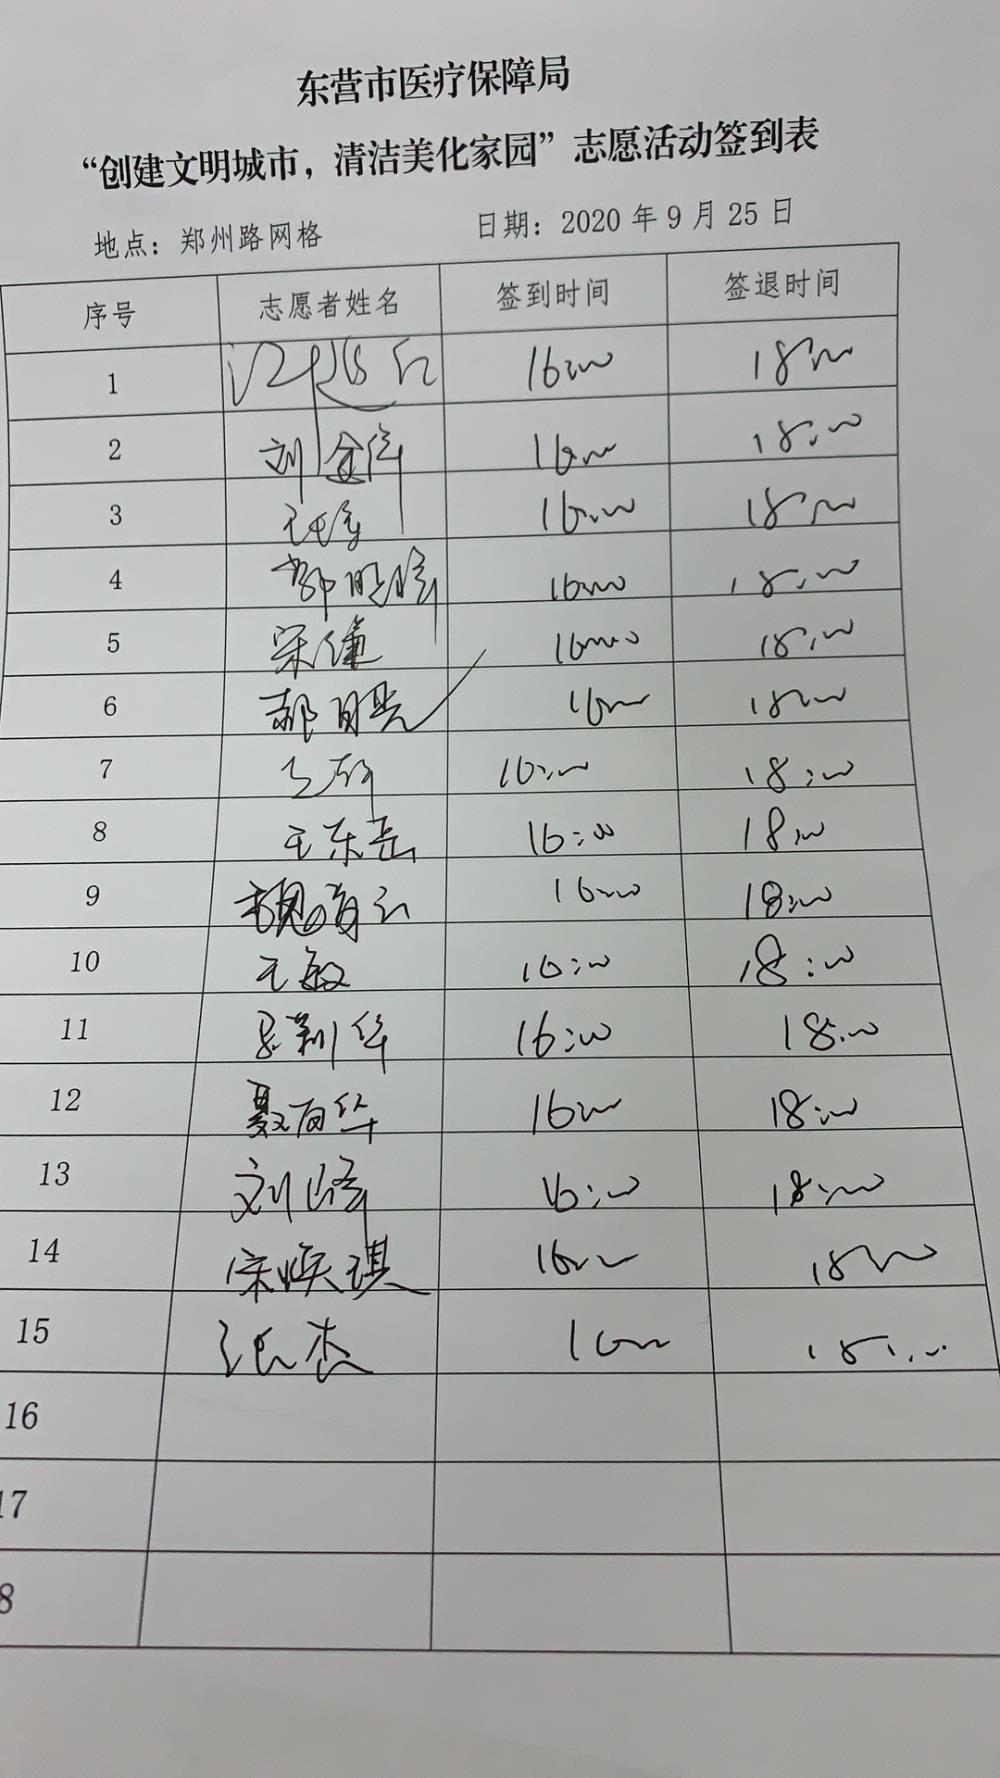 东营市医疗保障局
“创建文明城市，清洁美化家园”志愿活动签到表
地点：郑州路网格 日期：2020年9月25日
序号 志愿者姓名 签到时间 签退时间
1 16:00 18:00
2 刘金伟 16:00 18:00
3 16:00 18:00
4 16:00 18:00
5 宋健 16:00 18:00
6 郝明亮 16:00 18:00
7 16:00 18:00
8 王东岳 16:00 18:00
9 魏 16:00 18:00
10 王敏 16:00 18:00
11 16:00 18:00
12 聂百华 16:00 18:00
13 刘峰 16:00 18:00
14 宋焕琪 16:00 18:00
15 张杰 16:00 18:00
16
17
8